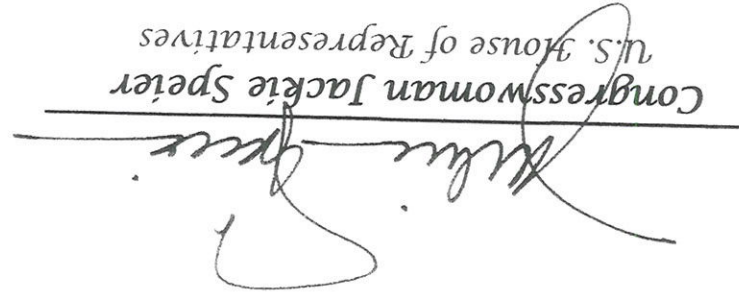 Jackie Speier
Congresswoman Jackie Speier
U.S. House of Representatives